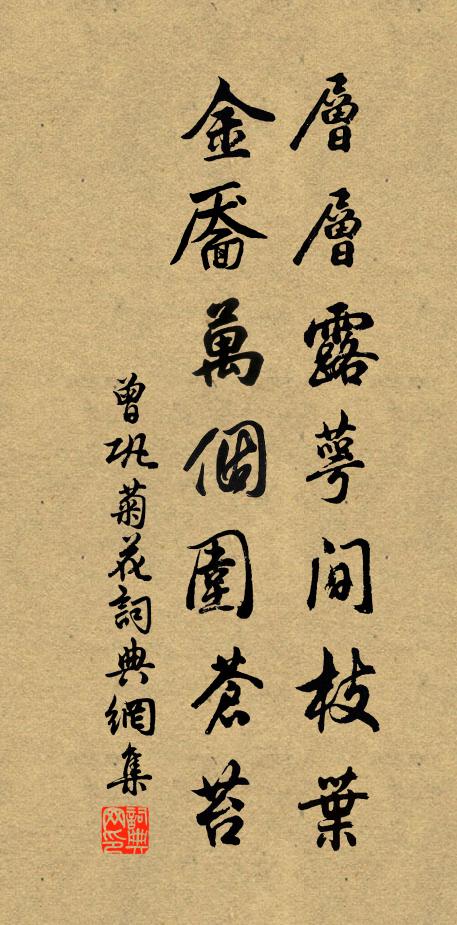 層層露萼間枝葉
金靨萬個圍蒼苔
曾巩菊花詞典網集
詞典網印